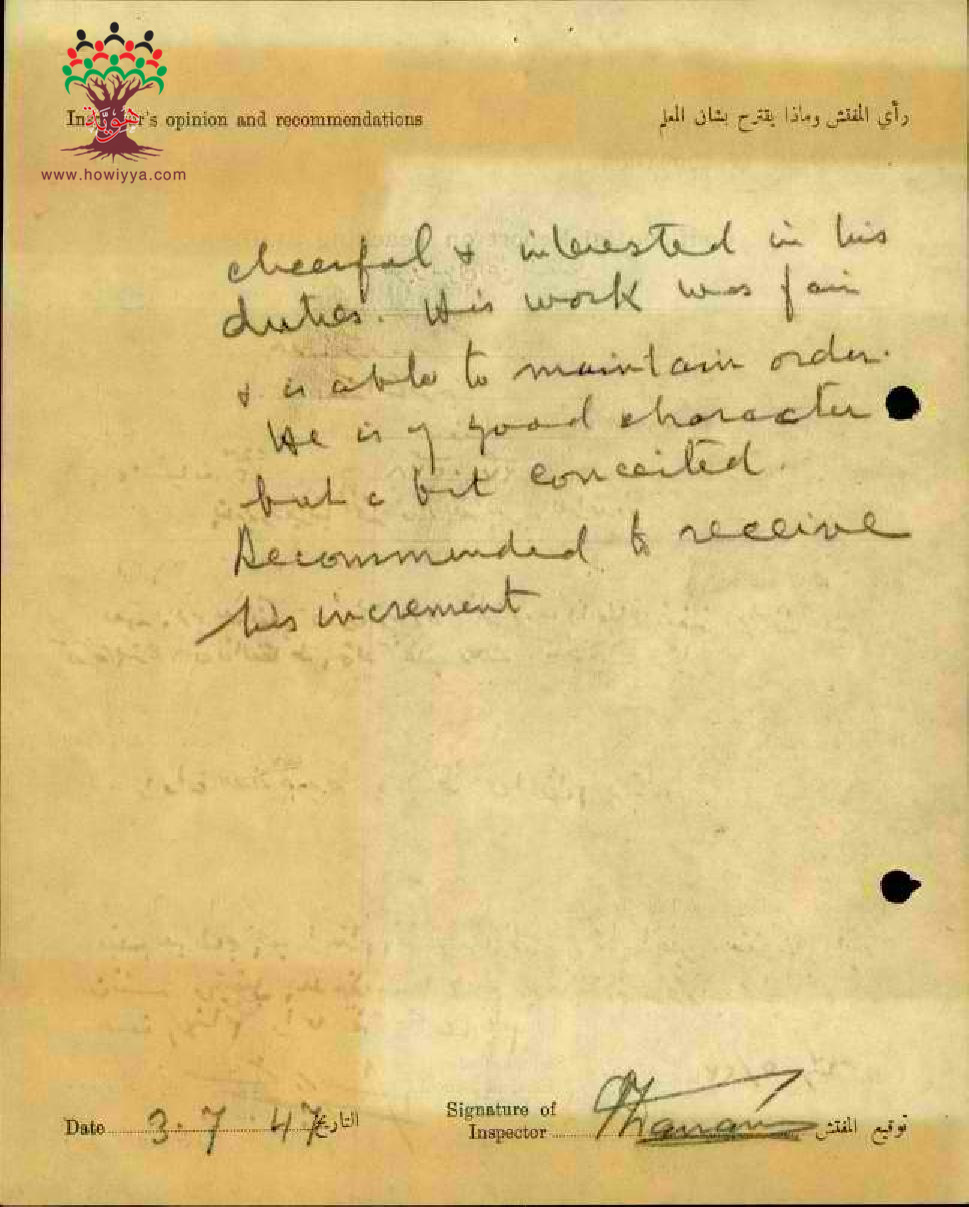 هويّة
www.howiyya.com
Inspector's opinion and recommendations
رأي المفتش وماذا يقترح بشان المعلم
cheerful & interested in his
duties. His work was fair
& is able to maintain order.
He is of good character
but a bit conceited.
Recommended to receive
his increment
Date 3.7.47 التاريخ
Signature of
Inspector توقيع المفتش